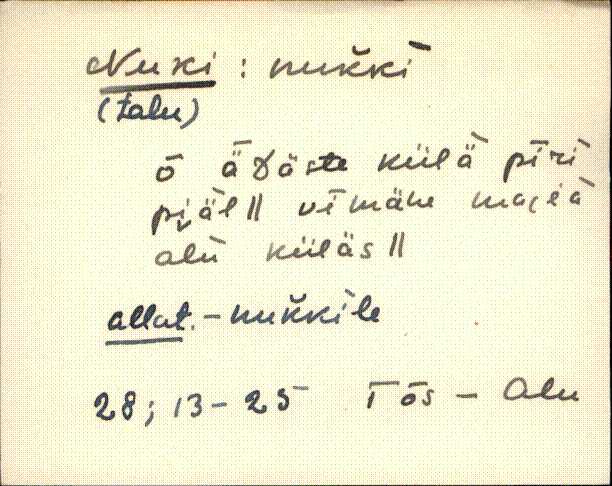 Nuki : nuk̆kī
(talu)
ō äᴅäste külä pīri
pi̯äl || vīmäne maja
alū küläs ||
allat. - nuk̆kile
28; 13-25 Tõs - Alu